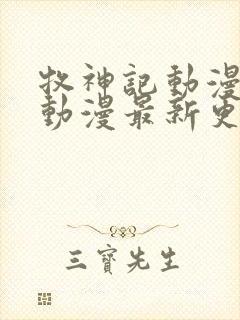 牧神記動漫
動漫最新更
三寶先生